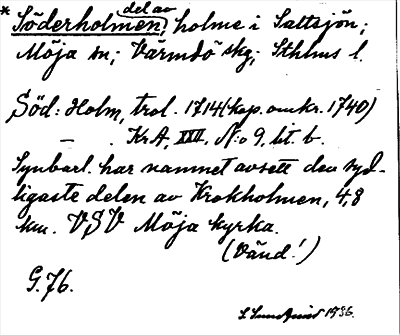 * Söderholmen, del av holme i Saltsjön;
Möja sn; Värmdö skg; Sthlms l.
Söd: Holm, trol. 1714 (kop. omkr. 1740)
— . KrA, XXII, N:o 9, lit. b.
Synbarl. har namnet avsett den syd-
ligaste delen av Krokholmen, 4,8
km. VSV Möja kyrka.
(Vänd!)
G. 76.
1936.